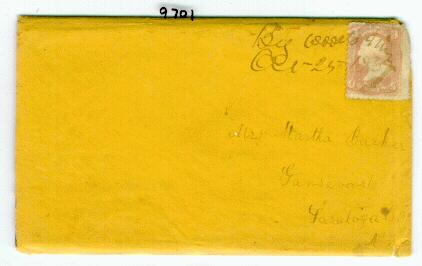 9701
Big
Oct-25-
Mrs Martha Barker
Gansevoort
Saratoga
N